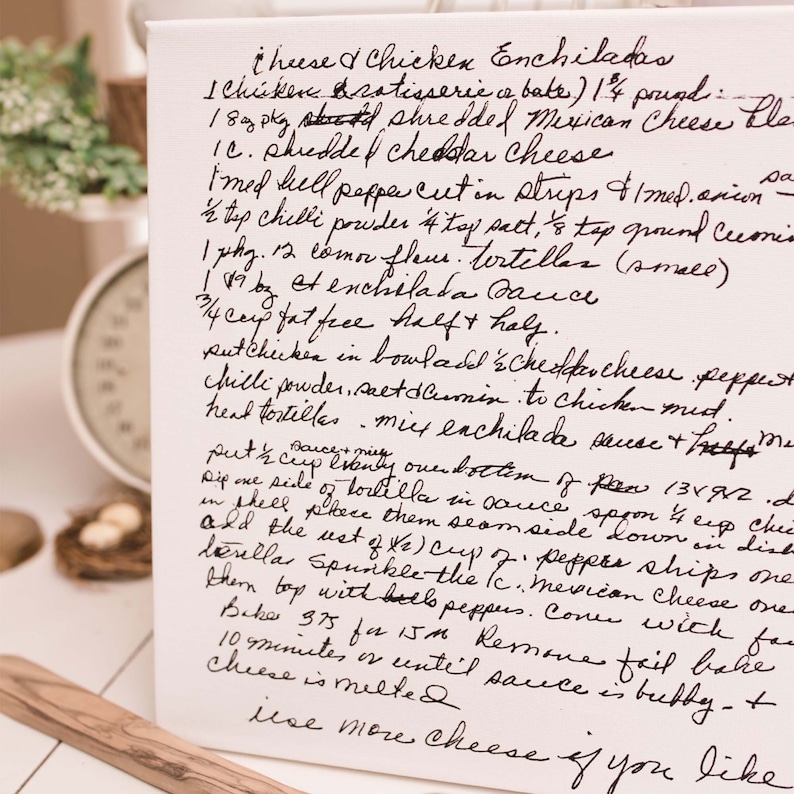 Cheese & Chicken Enchiladas
1 chicken (rotisserie or bake) 1 3/4 pound.
1 8 oz pkg shredded Mexican Cheese Ble
1 c. shredded cheddar cheese
1 med bell pepper cut in strips & 1 med. onion sa
1/2 tsp chilli powder 1/4 tsp salt, 1/8 tsp ground Cumin
1 pkg. 12 flour. tortillas (small)
1 19 oz enchilada sauce
3/4 cup fat free half + half.
put chicken in bowl add 1/2 cheddar cheese. pepper +
chilli powder, salt & cumin. to chicken mix.
heat tortillas. mix enchilada sauce + half mi
sauce + milk
put 1/2 cup evenly over bottom of pan 13x9x2. d
Dip one side of tortilla in sauce spoon 1/4 cup chic
in shell place them seam side down in dish
add the rest of (1/2) cup of. pepper strips one
tortillas Sprinkle the 1c. Mexican cheese over
them top with peppers. Cover with fo
Bake 375 for 15 m Remove foil bake
10 minutes or until sauce is bubbly. +
cheese is melted
use more cheese if you like